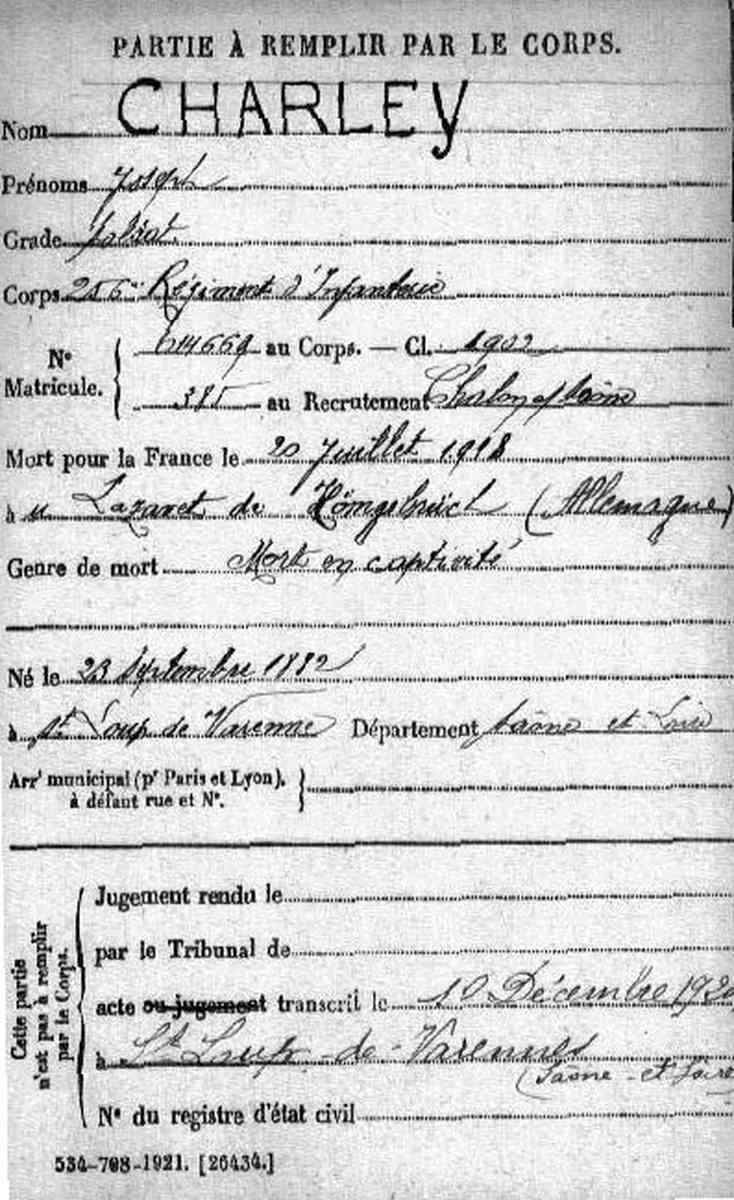 PARTIE À REMPLIR PAR LE CORPS.
Nom CHARLEY
Prénoms Joseph
Grade soldat
Corps 256e Régiment d'Infanterie
Nº Matricule. 614669 au Corps. — Cl. 1902
385 au Recrutement Chalon s/ Saône
Mort pour la France le 20 Juillet 1918
à u Lazaret de (Allemagne)
Genre de mort Mort en captivité
Né le 23 Septembre 1882
à St Loup de Varenne Département Saône et Loire
Arrt municipal (pr Paris et Lyon),
à défaut rue et Nº.
Cette partie
n'est pas à remplir
par le Corps.
Jugement rendu le
par le Tribunal de
acte ou jugement transcrit le 10 Décembre 1920
à St Loup-de-Varennes
(Saône-et-Loire
Nº du registre d'état civil
534-708-1921. [26434.]